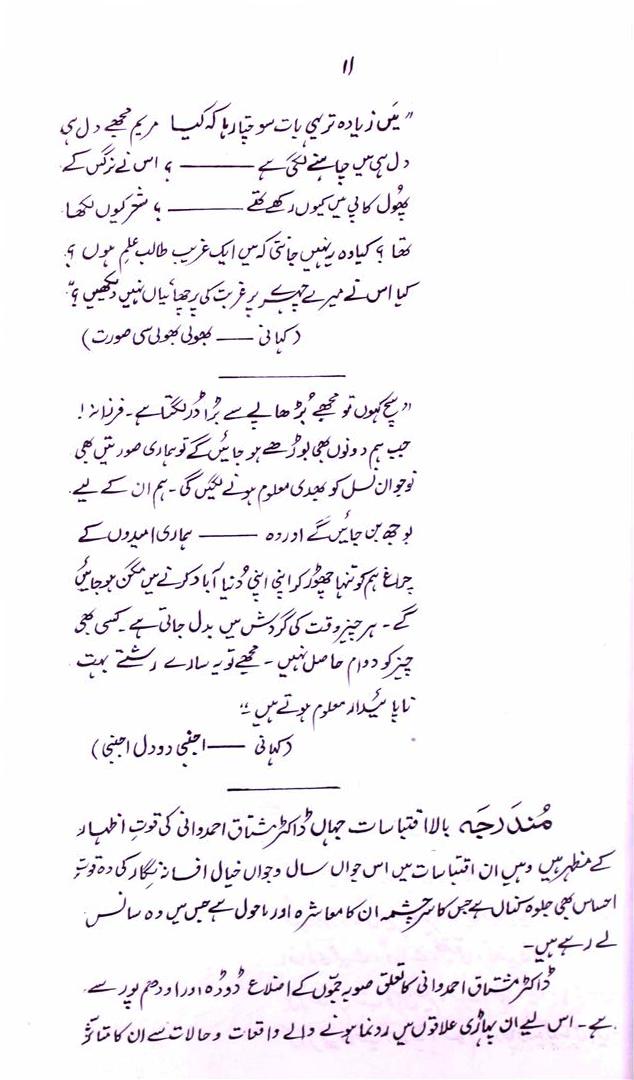 ۱۱
”میں زیادہ تر یہی بات سوچتا رہا کہ کیا مریم مجھے دل ہی
دل ہی میں چاہنے لگی ہے ——— ؟ اس نے نرگس کے
پھول کاپی میں کیوں رکھے تھے ——— ؟ شعر کیوں لکھا
تھا ؟ کیا وہ یہ نہیں جانتی کہ میں ایک غریب طالب علم ہوں ؟
کیا اس نے میرے چہرے پر غربت کی پرچھائیاں نہیں دیکھیں ؟“
(کہانی —— بھولی بھولی سی صورت)
”سچ کہوں تو مجھے بُڑھاپے سے بڑا ڈر لگتا ہے ۔ فرزانہ !
جب ہم دونوں بھی بوڑھے ہو جائیں گے تو ہماری صورتیں بھی
نوجوان نسل کو بھدی معلوم ہونے لگیں گی ۔ ہم ان کے لیے
بوجھ بن جائیں گے اور وہ ——— ہماری امیدوں کے
چراغ ہم کو تنہا چھوڑ کر اپنی اپنی دُنیا آباد کرنے میں مگن ہو جائیں
گے ۔ ہر چیز وقت کی گردش میں بدل جاتی ہے ۔ کسی بھی
چیز کو دوام حاصل نہیں ۔ مجھے تو یہ سارے رشتے بہت
ناپائیدار معلوم ہوتے ہیں ۔“
(کہانی —— اجنبی دو دل اجنبی)
مُندرَجہ بالا اقتباسات جہاں ڈاکٹر مشتاق احمد وانی کی قوتِ اظہار
کے مظہر ہیں وہیں ان اقتباسات میں اس جواں سال و جواں خیال افسانہ نگار کی وہ قوتِ
احساس بھی جلوہ کناں ہے جس کا سرچشمہ ان کا معاشرہ اور ماحول ہے جس میں وہ سانس
لے رہے ہیں ۔
ڈاکٹر مشتاق احمد وانی کا تعلق صوبہ جموں کے اضلاع ڈوڈہ اور اودھم پور سے
ہے ۔ اس لیے ان پہاڑی علاقوں میں رونما ہونے والے واقعات و حالات سے ان کا متاثر